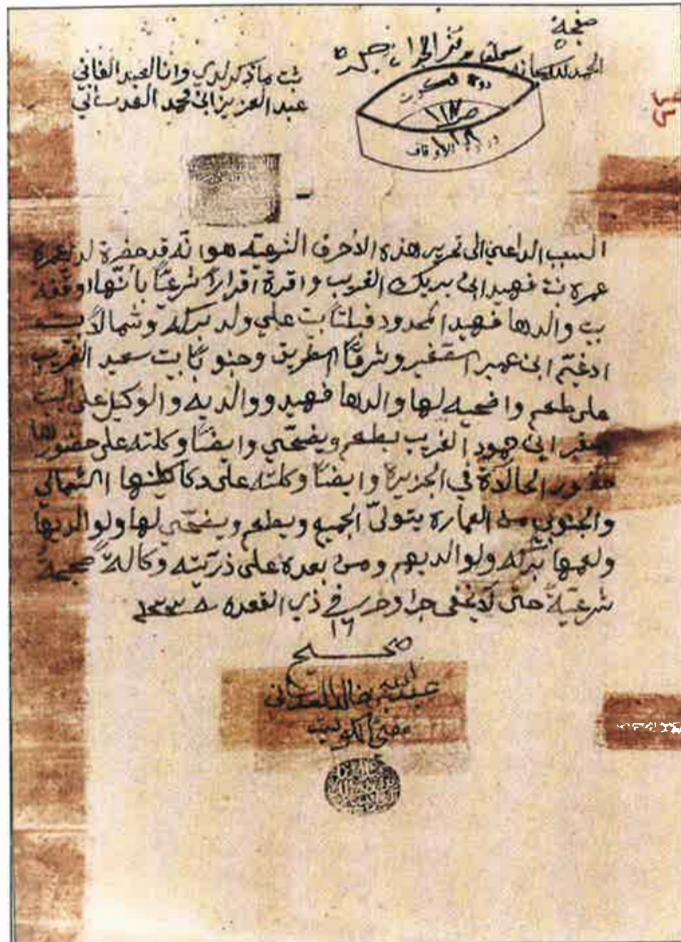 الحمد لله سبحانه
ثبت ما ذكر لدي وانا العبد الفاني
عبد العزيز ابن محمد العدساني
دولة الكويت
وزارة الأوقاف
السبب الداعي الى تحرير هذه الأحرف الشرعيه هو انه قد حضرة لدي عمره
عمره بنة فهيد ابن بريك الغريب واقرة اقراراً شرعيًا بأنها اوقفه
بيت والدها فهيد المحدود قبلتًا بيت علي ولد بركه وشمالاً بيت
ادغيّم ابن عمير الصقير وشرقًا الطريق وجنوبًا بيت سعيد الغريب
على طعم واضحيه لها والدها فهيد ووالديه والوكيل على البيت
صقر ابن حمود الغريب يطعم ويضحّي وايضًا وكلته على حضورها
حضور الحالاة في الجزيرة وايضًا وكلته على دكاكينها الشمالي
والجنوبي من العماره يتولىّ الجميع ويطعم ويضحّي لها ولوالديها
ولعمها بركه ولوالديهم ومن بعده على ذرّيته وكالةً صحيحة
شرعيّةً حتى لا يخفى جرا وحرر في ذي القعده ١٣٣٨
١٦
صحيح
عبد الله خالد العدساني
مفتي الكويت